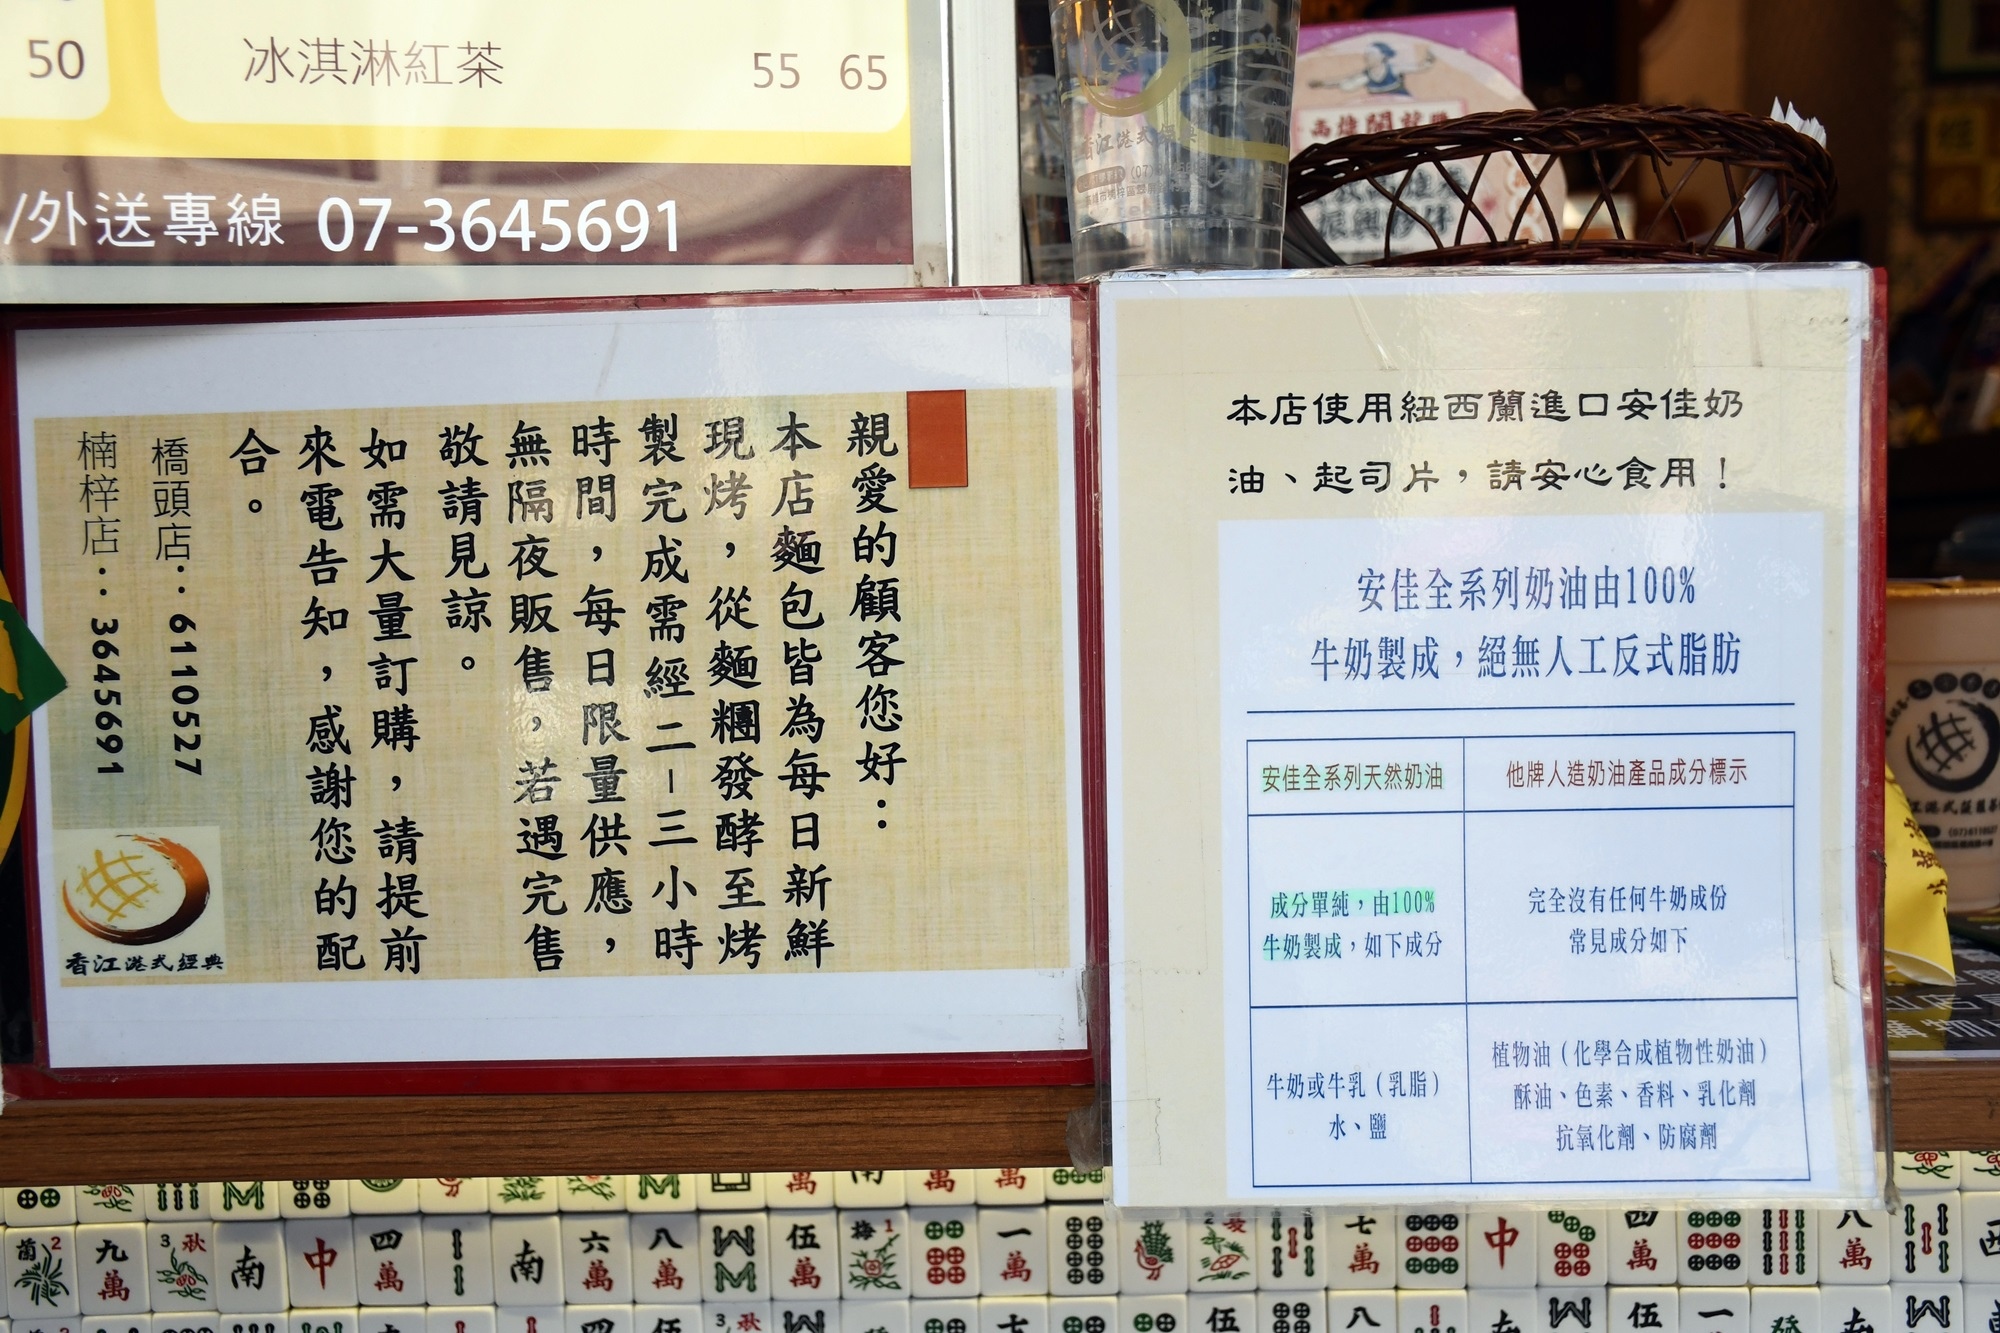 50
冰淇淋紅茶 55 65
/外送專線 07-3645691
親愛的顧客您好：
本店麵包皆為每日新鮮
現烤，從麵糰發酵至烤
製完成需經二－三小時
時間，每日限量供應，
無隔夜販售，若遇完售
敬請見諒。
如需大量訂購，請提前
來電告知，感謝您的配
合。
橋頭店：6110527
楠梓店：3645691
香江港式經典
本店使用紐西蘭進口安佳奶
油、起司片，請安心食用！
安佳全系列奶油由100%
牛奶製成，絕無人工反式脂肪
安佳全系列天然奶油
他牌人造奶油產品成分標示
成分單純，由100%
牛奶製成，如下成分
完全沒有任何牛奶成份
常見成分如下
牛奶或牛乳（乳脂）
水、鹽
植物油（化學合成植物性奶油）
酥油、色素、香料、乳化劑
抗氧化劑、防腐劑
香江港式經典
九萬 秋 南 中 四萬 南 六萬 八萬 伍萬 梅 一萬 七萬 中 四萬 八萬